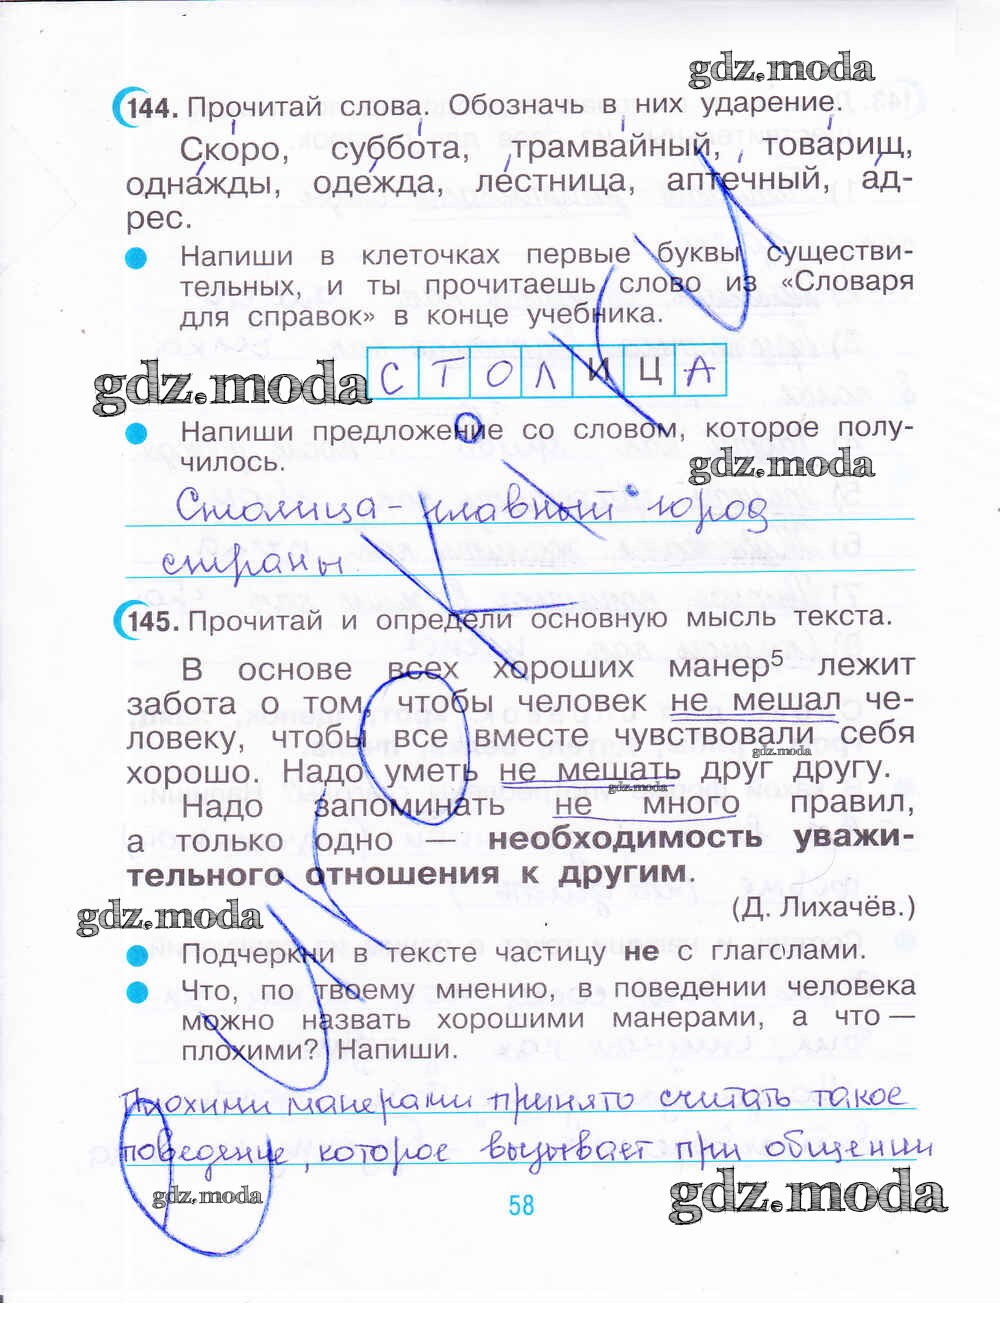 gdz.moda
144. Прочитай слова. Обозначь в них ударение.
Скоро, суббота, трамвайный, товарищ,
однажды, одежда, лестница, аптечный, ад-
рес.
Напиши в клеточках первые буквы существи-
тельных, и ты прочитаешь слово из «Словаря
для справок» в конце учебника.
gdz.moda
С Т О Л И Ц А
Напиши предложение со словом, которое полу-
чилось.
gdz.moda
Столица - главный город
страны.
145. Прочитай и определи основную мысль текста.
В основе всех хороших манер5 лежит
забота о том, чтобы человек не мешал че-
ловеку, чтобы все вместе чувствовали себя
gdz.moda
хорошо. Надо уметь не мешать друг другу.
gdz.moda
Надо запоминать не много правил,
а только одно — необходимость уважи-
тельного отношения к другим.
gdz.moda
(Д. Лихачёв.)
Подчеркни в тексте частицу не с глаголами.
Что, по твоему мнению, в поведении человека
можно назвать хорошими манерами, а что —
плохими? Напиши.
Плохими манерами принято считать такое
поведение, которое вызывает при общении
gdz.moda
gdz.moda
58